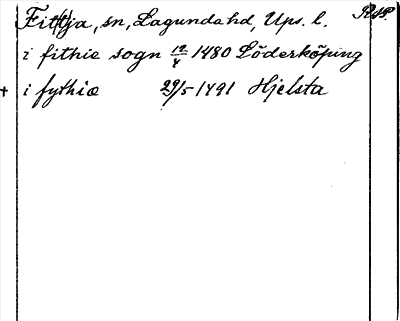 Fit(t)ja, sn, Lagunda hd, Ups. l. Rup.
i fithie sogn 12/4 1480 Söderköping
+ i fythiæ 29/5 1491 Hjelsta